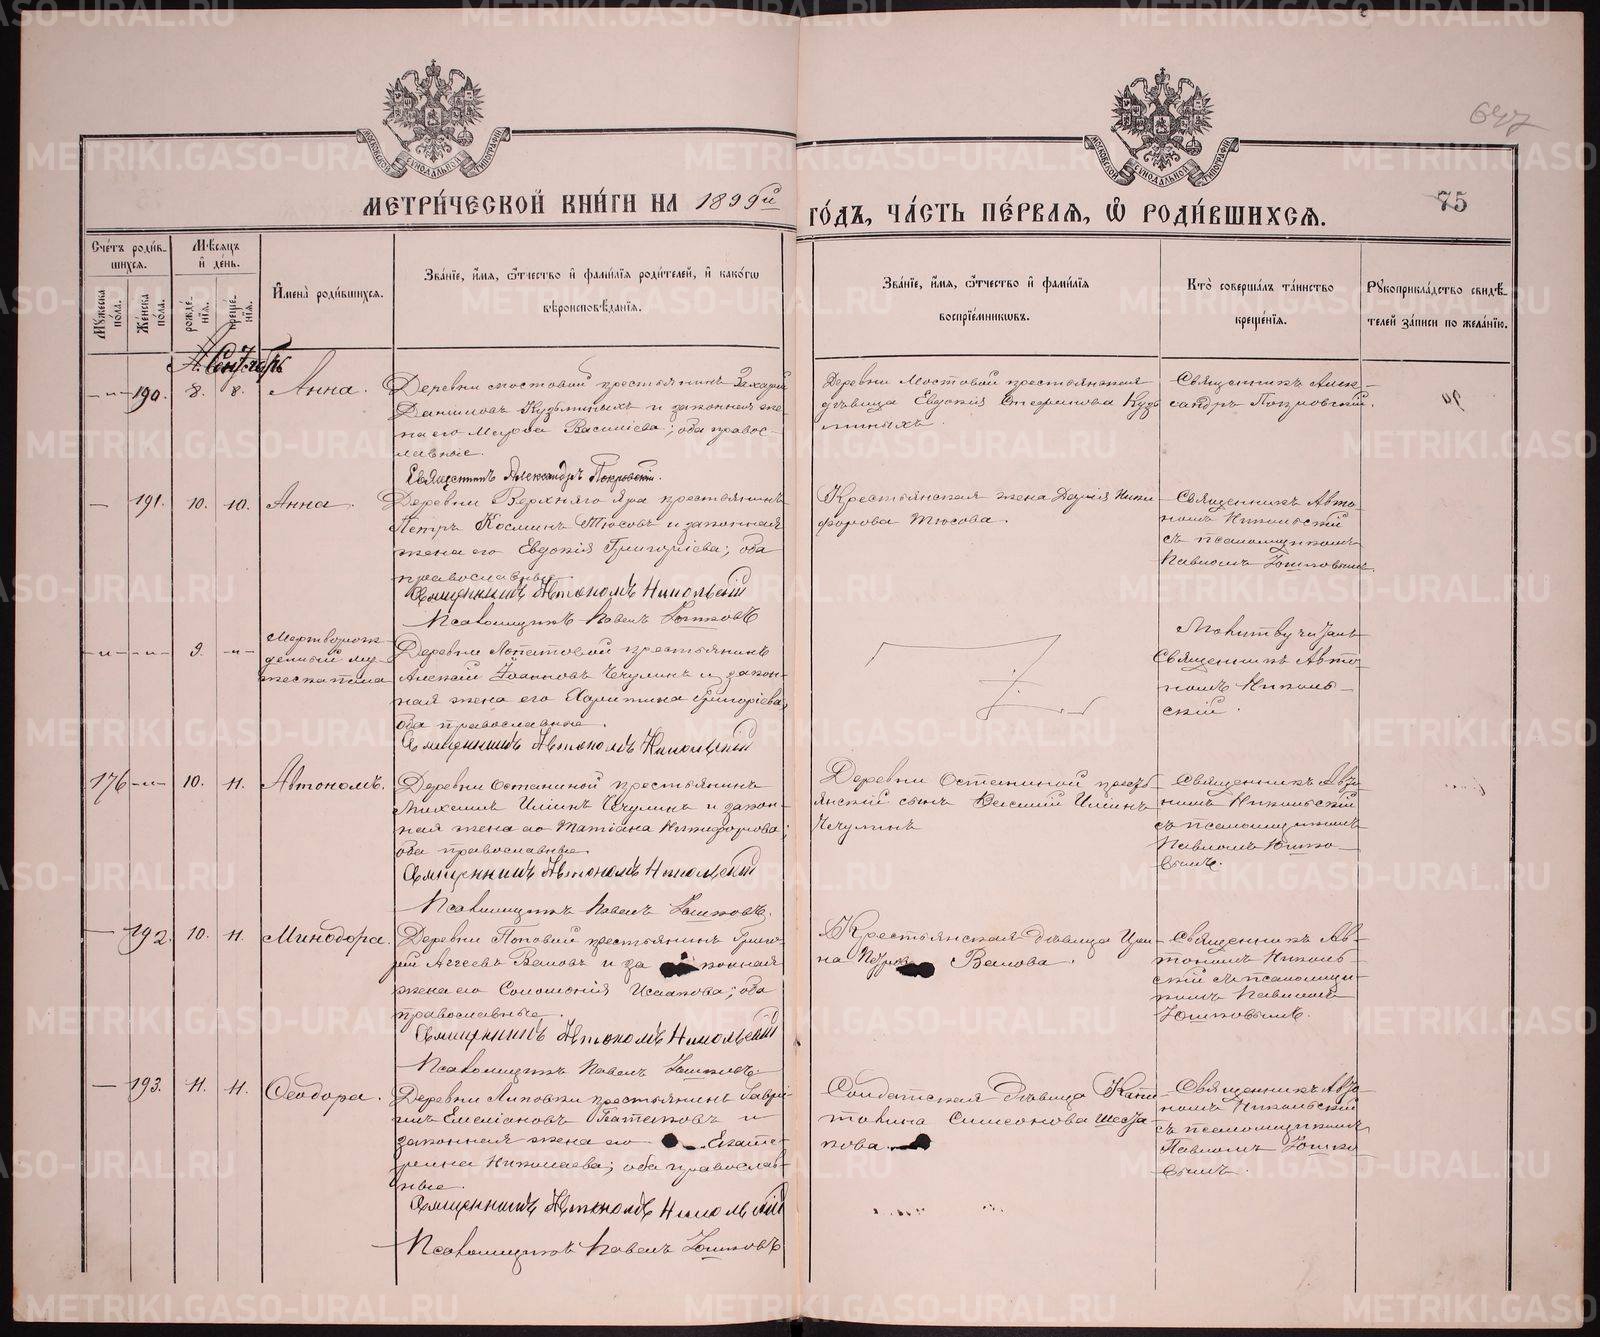 647
75
МОСКОВСКОЙ СѴНОДАЛЬНОЙ ТИПОГРАФІИ
МОСКОВСКОЙ СѴНОДАЛЬНОЙ ТИПОГРАФІИ
МЕТРИ́ЧЕСКОЙ КНИ́ГИ НА 1899й ГО́ДЪ, ЧА́СТЬ ПЕ́РВАѦ, Ѡ҆ РОДИ́ВШИХСѦ.
Сче́тъ роди́в-
шихсѧ.
Мꙋ́жеска по́ла.
Же́нска по́ла.
Мѣ́сѧцъ
и҆ де́нь.
рожде́нїѧ.
креще́нїѧ.
И҆мена̀ роди́вшихсѧ.
Зва́нїе, и҆́мѧ, ѻ҆́тчество и҆ фами́лїѧ роди́телей, и҆ како́гѡ
вѣроисповѣ́данїѧ.
Зва́нїе, и҆́мѧ, ѻ҆́тчество и҆ фами́лїѧ
воспрїе́мникѡвъ.
Кто̀ соверша́лъ та́инство
креще́нїѧ.
Рꙋкоприкла́дство свидѣ́-
телей за́писи по жела́нїю.
Сентябрь
-"- 190. 8. 8. Анна.
Деревни Мостовой крестьянинъ Захарій
Даниловъ Кузьминыхъ и законная же-
на его Марѳа Василіева; оба правос-
лавные.
Священникъ Александръ Покровскій.
Деревни Мостовой крестьянская
дѣвица Евдокія Стефанова Кузь
миныхъ.
Священникъ Алек-
сандръ Покровскій.
— 191. 10. 10. Анна.
Деревни Верхняго Яра крестьянинъ
Петръ Косминъ Тюсовъ и законная
жена его Евдокія Григоріева; оба
православные.
Священникъ Автономъ Никольскій
Псаломщикъ Павелъ Юшковъ
Крестьянская жена Дарія Ники
форова Тюсова.
Священникъ Авто-
номъ Никольскій
съ псаломщикомъ
Павломъ Юшковымъ.
-"- -"- 9. -"-
Мертворож-
денный му-
жеска пола
Деревни Лопатовой крестьянинъ
Алексій Іоанновъ Чечулинъ и закон-
ная жена его Харитина Григоріева,
оба православные.
Священникъ Автономъ Никольскій
Молитву читалъ
Священникъ Авто-
номъ Николь-
скій.
176 -"- 10. 11. Автономъ.
Деревни Останиной крестьянинъ
Михаилъ Ильинъ Чечулинъ и закон-
ная жена его Татіана Никифорова;
оба православные.
Священникъ Автономъ Никольскій
Псаломщикъ Павелъ Юшковъ.
Деревни Останиной кресть
янскій сынъ Василій Ильинъ
Чечулинъ
Священникъ Авто
номъ Никольскій
съ псаломщикомъ
Павломъ Юшко-
вымъ.
— 192. 10. 11. Минодора.
Деревни Поповой крестьянинъ Григо-
рій Аггеевъ Валовъ и за конная
жена его Соломонія Исаакова; оба
православные.
Священникъ Автономъ Никольскій
Псаломщикъ Павелъ Юшковъ.
Крестьянская дѣвица Ири-
на Петрова Валова.
Священникъ Ав-
тономъ Николь-
скій съ псаломщи-
комъ Павломъ
Юшковымъ.
— 193. 11. 11. Ѳеодора.
Деревни Липовки крестьянинъ Гаврі-
илъ Емеліановъ Батаковъ и
законная жена его Екате-
рина Николаева; оба православ-
ные.
Священникъ Автономъ Никольскій
Псаломщикъ Павелъ Юшковъ
Солдатская дѣвица Капи-
толина Симеонова Шеста-
кова.
Священникъ Авто-
номъ Никольскій
съ псаломщикомъ
Павломъ Юшко-
вымъ.
METRIKI.GASO-URAL.RU